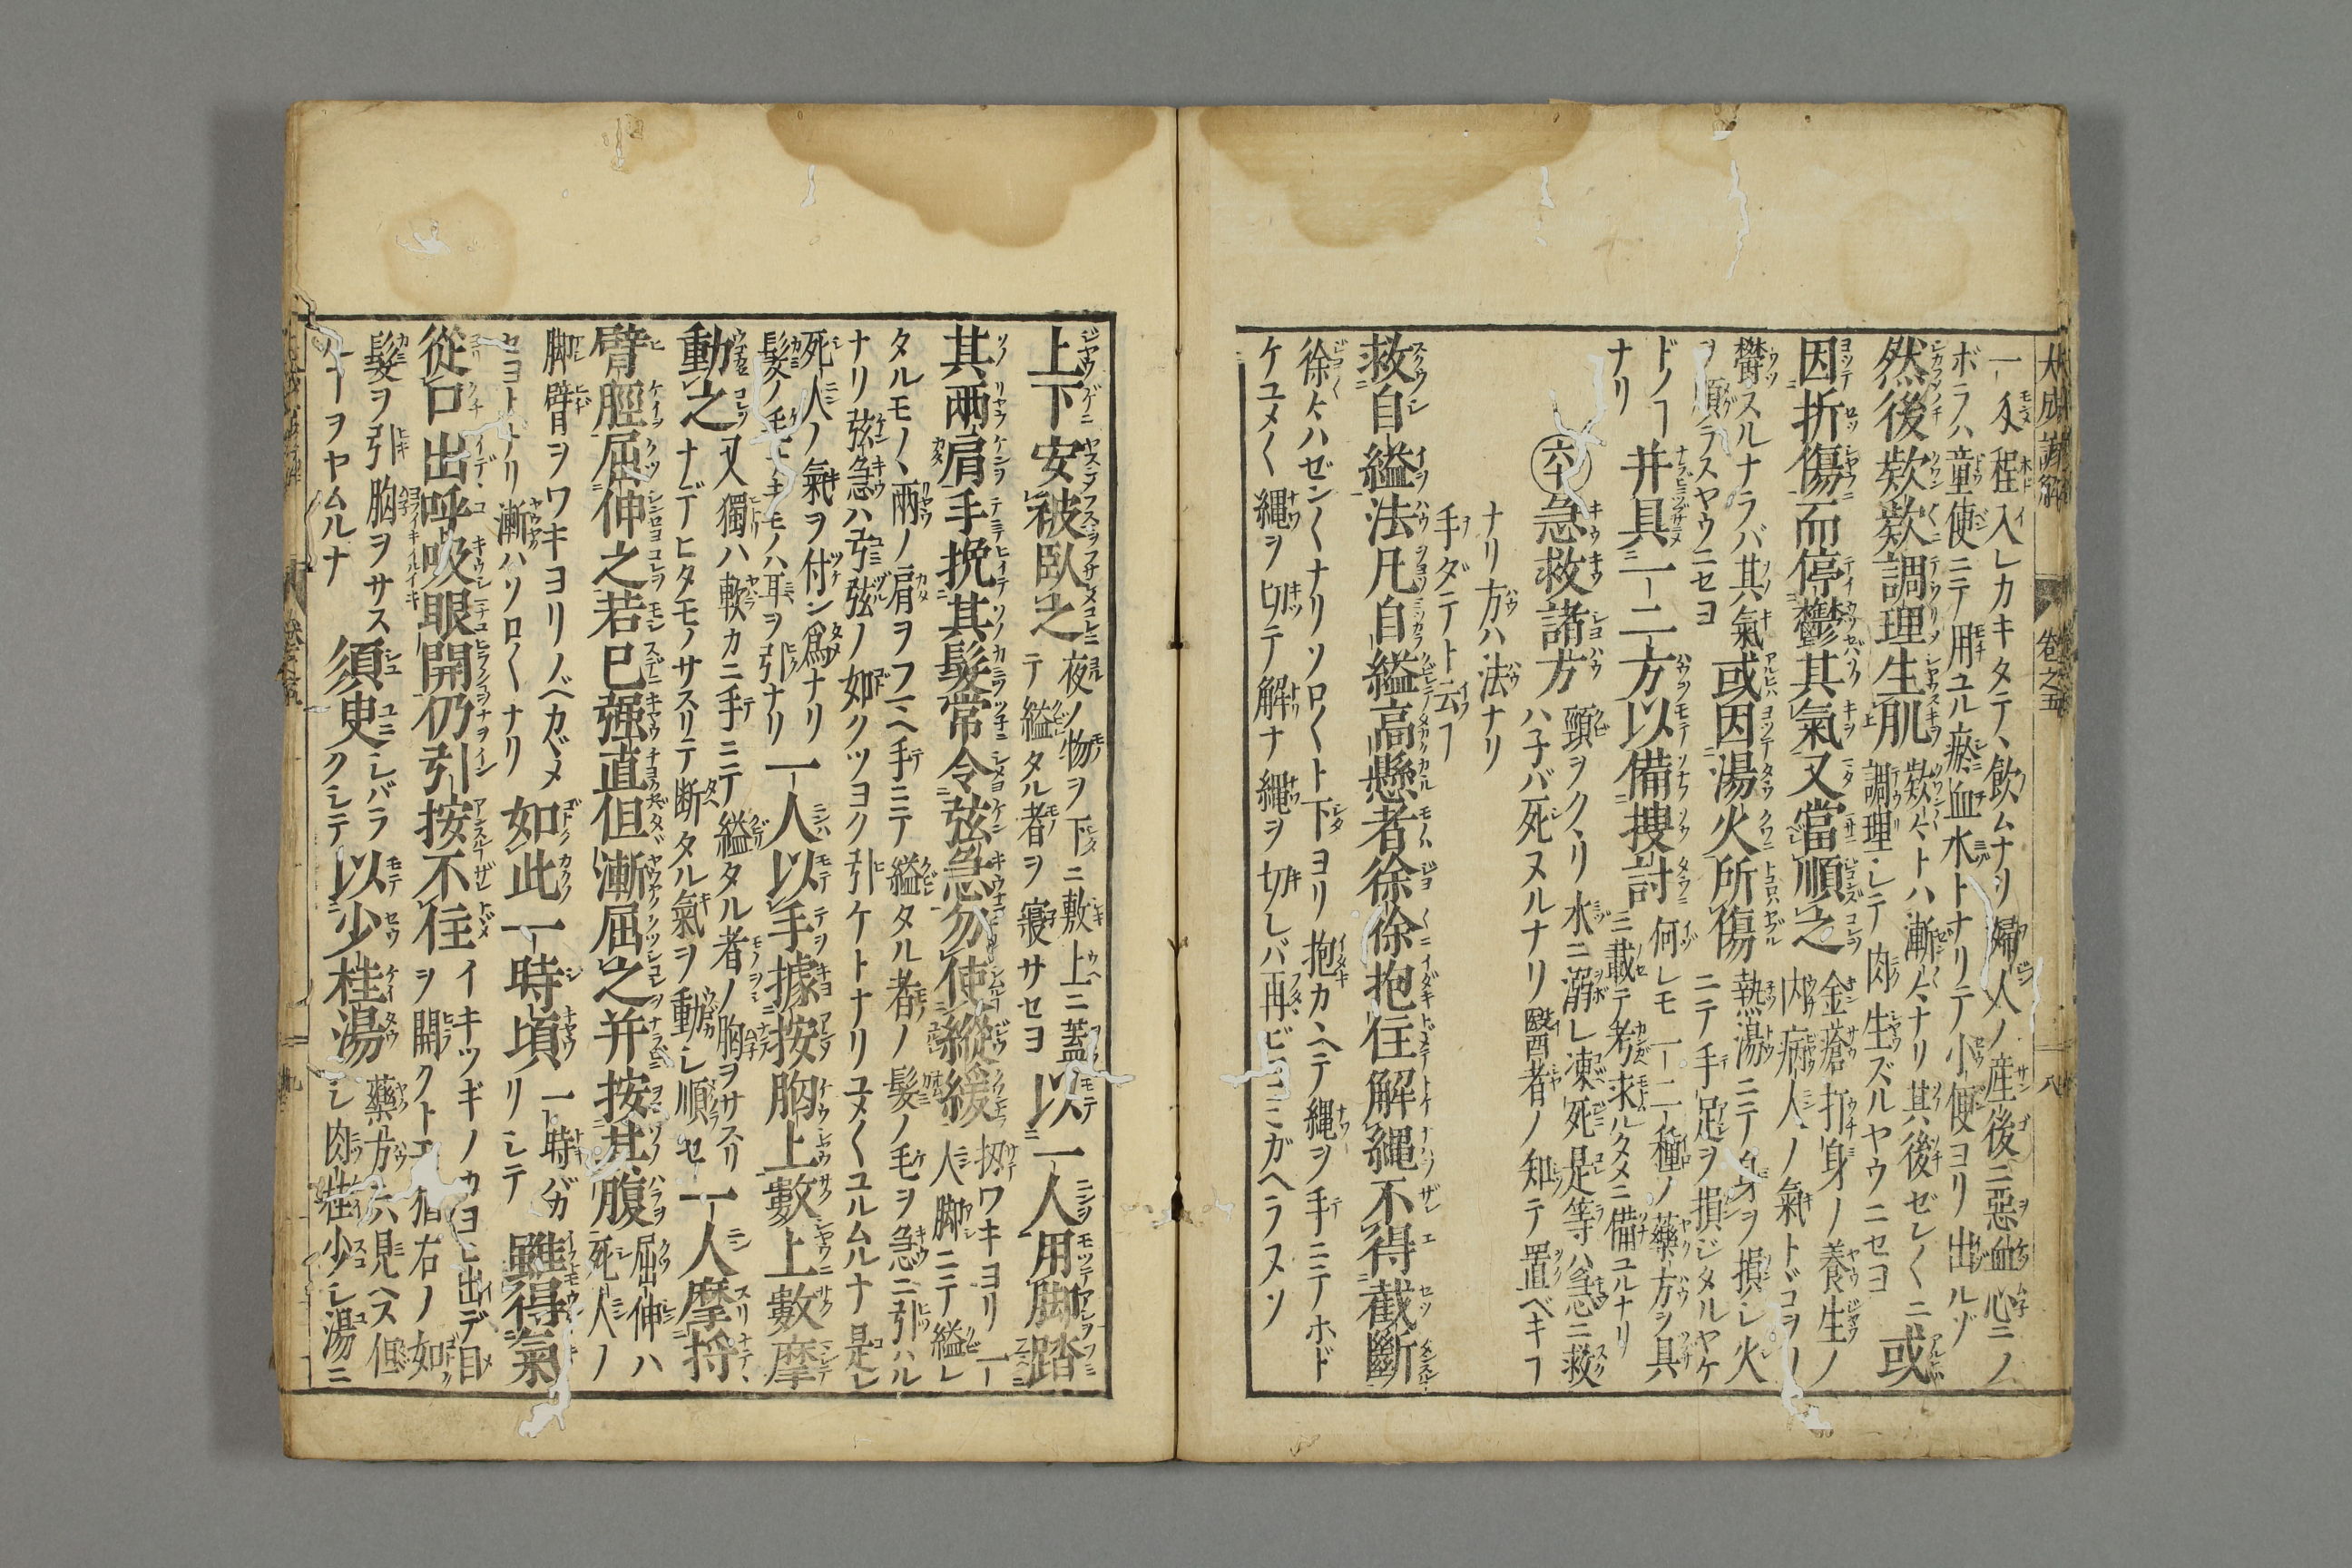 大成 卷之五 八
一 程入レカキタテ、飲ムナリ婦人ノ産後ニ惡血心ニノ
ボラハ童便ニテ用ユル瘀血水トナリテ小便ヨリ出ルゾ
然後欵欵調理生肌 欵々トハ漸々ナリ其後ゼン〱ニ 調理シテ肉生ズルヤウニセヨ 或
因折傷而停鬱其氣又當順之 金瘡打身ノ養生ノ 内病人ノ氣トドコヲリ
鬱スルナラバ其氣 ヲ順ラスヤウニセヨ 或因湯火所傷 熱湯ニテ身ヲ損シ火 ニテ手足ヲ損ジタルヤケ
ドノヿ ナリ 并具一二方以備搜討 何レモ一二種ノ藥方ヲ具 ニ載テ考求ルタメニ備ユルナリ
六十 急救諸方 頸ヲクヽリ水ニ溺レ凍死是等ハ急ニ救 ハ子バ死ヌルナリ醫者ノ知テ置ベキヿ
ナリ方ハ法ナリ
手ダテト云ヿ
救自縊法凡自縊高懸者徐徐抱住解繩不得截斷
徐々ハゼン〱ナリソロ〱ト下ヨリ抱カヽヘテ縄ヲ手ニテホド
ケユメ〱縄ヲ切テ解ナ縄ヲ切レバ再ビヨミガヘラヌソ
上下安被臥之 夜ノ物ヲ下ニ敷上ニ蓋 テ縊タル者ヲ寢サセヨ 以一人用脚踏
其兩肩手挽其髮常令弦急勿使縱緩 扨ワキヨリ一 人脚ニテ縊レ
タルモノヽ兩ノ肩ヲフマヘ手ニテ縊タル者ノ髮ノ毛ヲ急ニ引ハル
ナリ弦急ハ引弦ノ如クツヨク引ケトナリユメ〱ユルムルナ是レ
死人ノ氣ヲ付ン爲ナリ 髮ノ毛 モノハ耳ヲ引ナリ 一人以手據按胸上數上數摩
動之 又獨ハ軟カニ手ニテ縊タル者ノ胸ヲサスリ ナデヒタモノサスリテ断タル氣ヲ動シ順セ 一人摩捋
臂脛屈伸之若已强直但漸屈之并按其腹 屈伸ハ 死人ノ
脚臂ヲワキヨリノベカヾメ セヨトナリ漸ハソロ〱ナリ 如此一時頃 一時バカ リシテ 雖得氣
從口出呼吸眼開仍引按不住 イキツギノカヨヒ出デ目 ヲ開クトモ猶右ノ如
髮ヲ引胸ヲサス ルヿヲヤムルナ 須臾 シバラ クシテ 以少桂湯 藥方六見ヘス但 シ肉桂少シ湯ニ